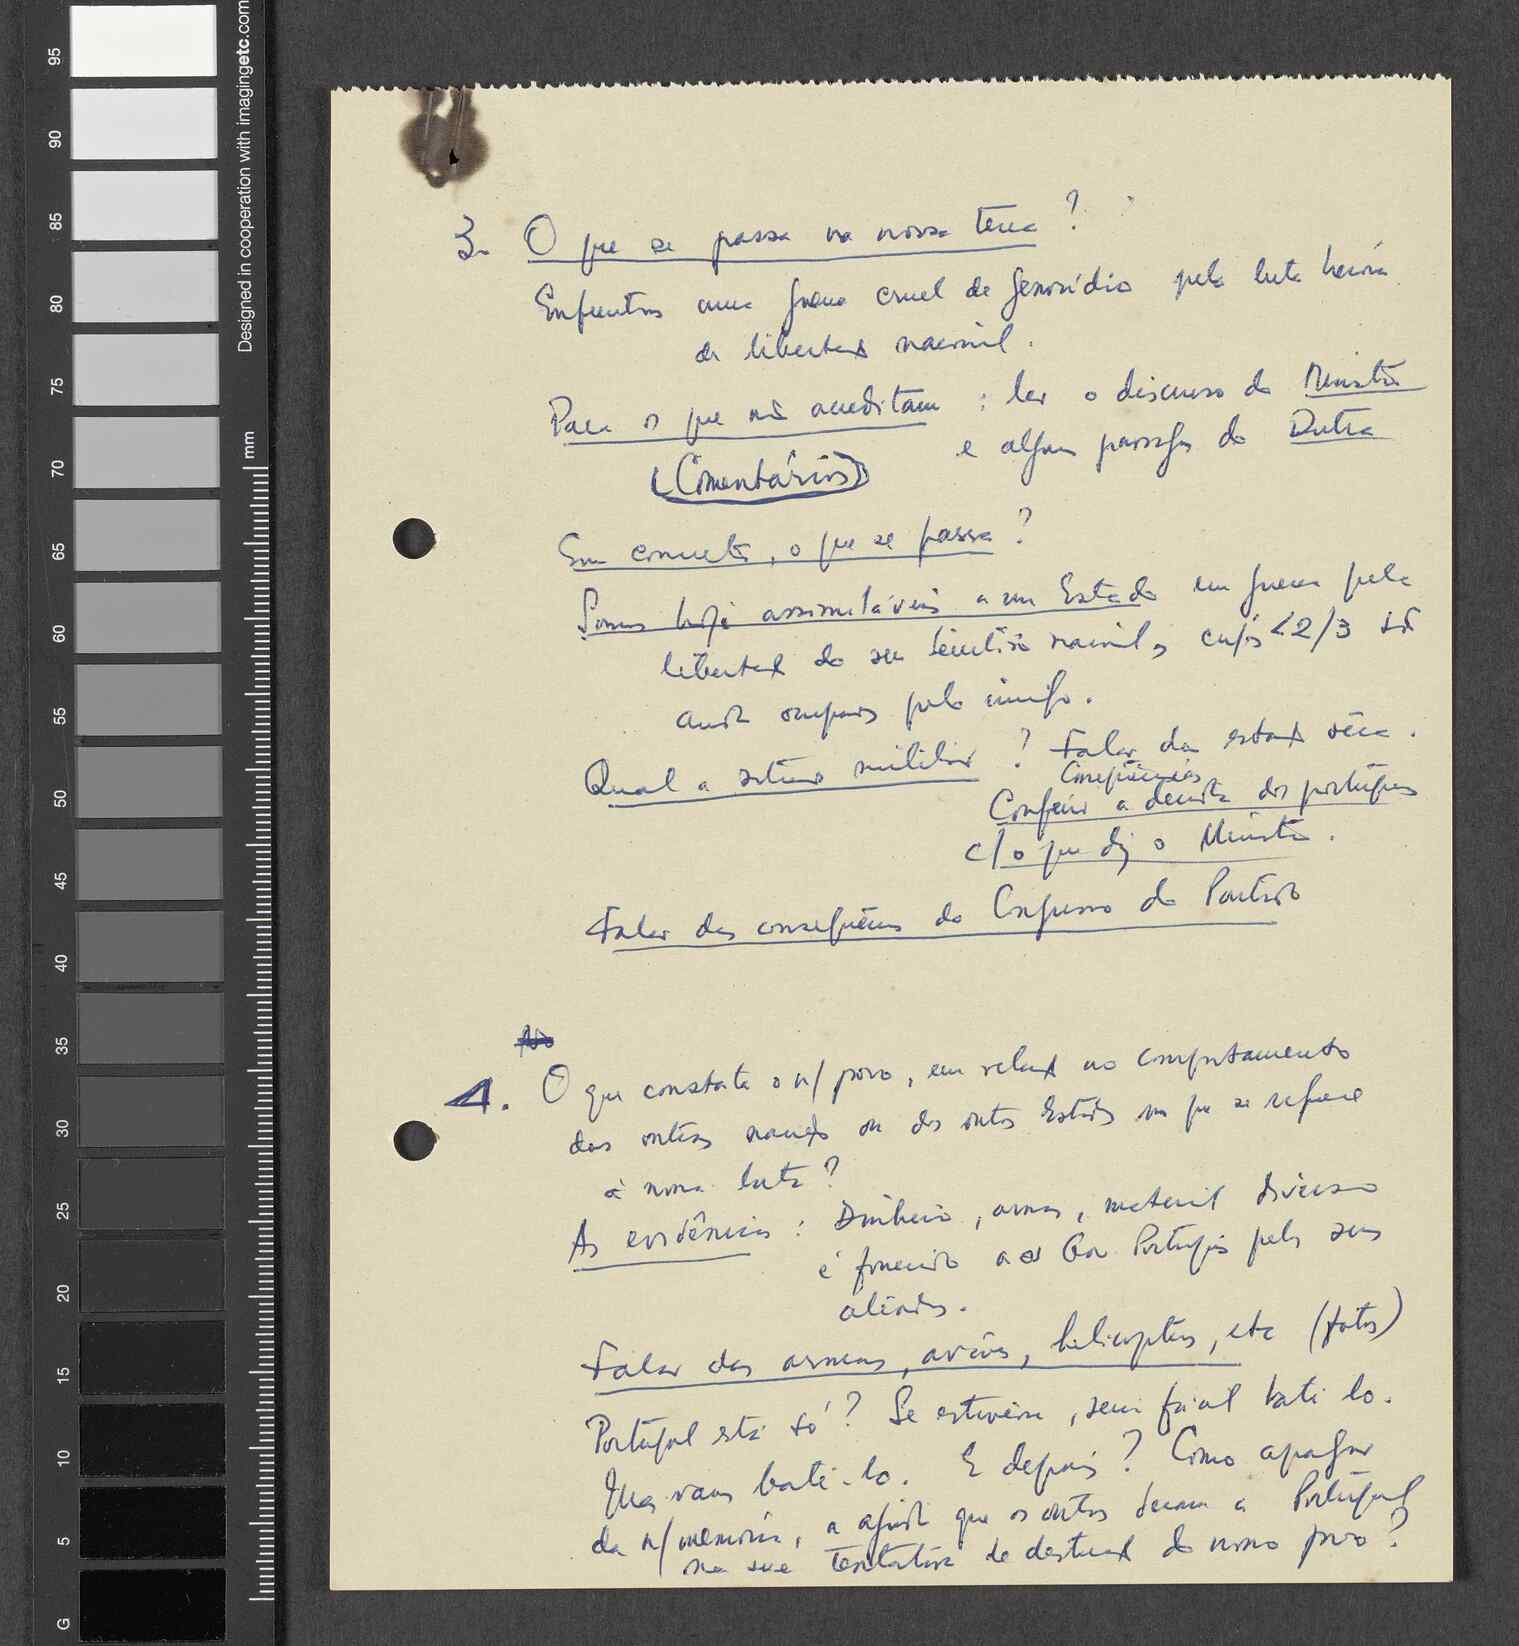 Designed in cooperation with imagingetc.com
mm
95
90
85
80
75
70
65
60
55
50
45
40
35
30
25
20
15
10
5
G
3. O que se passa na nossa terra?
Enfrentamos uma guerra cruel de genocídio pela luta heróica
de libertação nacional.
Para os que não acreditam: ler o discurso do Ministro
e algumas passagens do Dutra
(Comentários)
Em concreto, o que se passa?
Somos hoje assimiláveis a um Estado em guerra pela
libertação do seu território nacional, cujos <2/3 são
ainda ocupados pelo inimigo.
Qual a situação militar? Falar da estação sêca.
Consequências
Conferir a derrota dos portugueses
c/ o que diz o Ministro.
Falar das consequências do Congresso do Partido
4. O que constata o n/ povo, em relação ao comportamento
das outras nações ou dos outros Estados no que se refere
à nossa luta?
As evidências: Dinheiro, armas, material diverso
é fornecido ao Gov Português pelos seus
aliados.
Falar das armas, aviões, helicopteros, etc (fotos)
Portugal está só? Se estivesse, seria fácil bate-lo.
Mas vamos bate-lo. E depois? Como apagar
da n/ memória, a ajuda que os outros deram a Portugal
na sua tentativa de destruição do nosso povo?